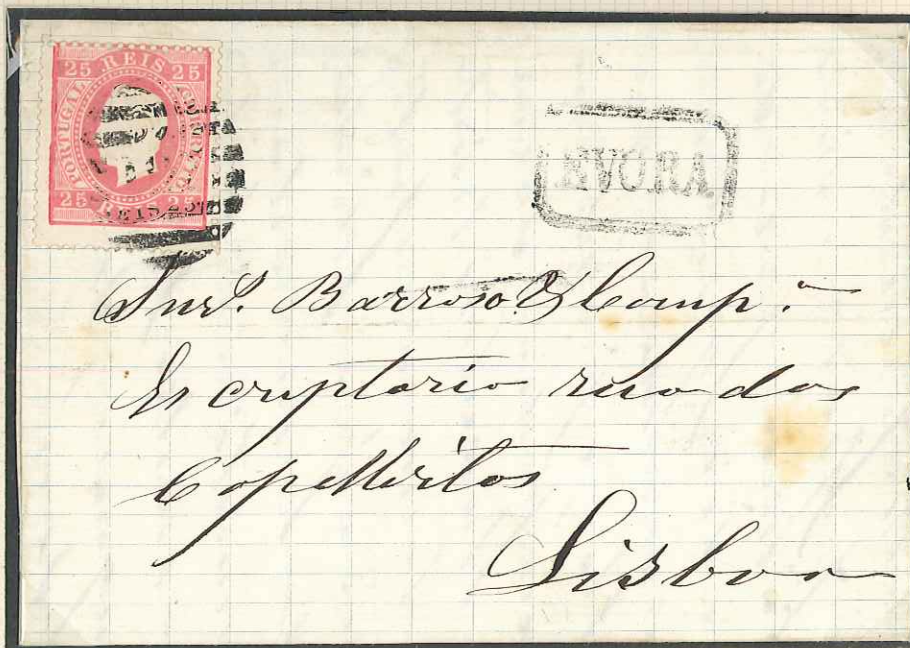 25 REIS 25
PORTUGAL
CORREIO
25 REIS 25
EVORA
Snrs. Barroso & Comp.ª
Escriptorio rua dos
Capellistas
Lisboa